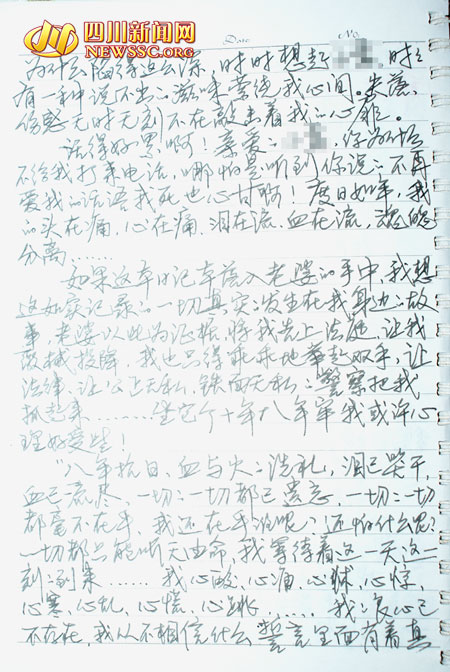 四川新闻网
NEWSSC.ORG
Date No.
为什么陷得这么深,时时想起 时时
有一种说不出的滋味萦绕我心间。失落、
伤感无时无刻不在敲击着我的心扉。
活得好累啊!亲爱的 ,你为什么
不给我打来电话,哪怕是听到你说的不再
爱我的话语我死也心甘啊!度日如年,我
的头在痛,心在痛,泪在流,血在流,魂魄
分离……
如果这本日记本落入老婆的手中,我想
这如实记录的一切真实的发生在我身边的故
事,老婆以此为证据,将我告上法庭,让我
缴械投降,我也只得乖乖地举起双手,让
法律,让公正无私,铁面无私的警察把我
抓起来……坐它个十年八年牢我或许心
理好受些!
"八年抗日、血与火的洗礼,泪已哭干,
血已流尽,一切的一切都已遗忘,一切的一切
都毫不在乎,我还在乎谁呢?还怕什么呢?
一切都只能听天由命,我等待着这一天这一
刻的到来……我心酸、心痛、心悸、心惊、
心寒、心乱、心慌、心跳……我的良心已
不存在,我从不相信什么誓言里面有着真